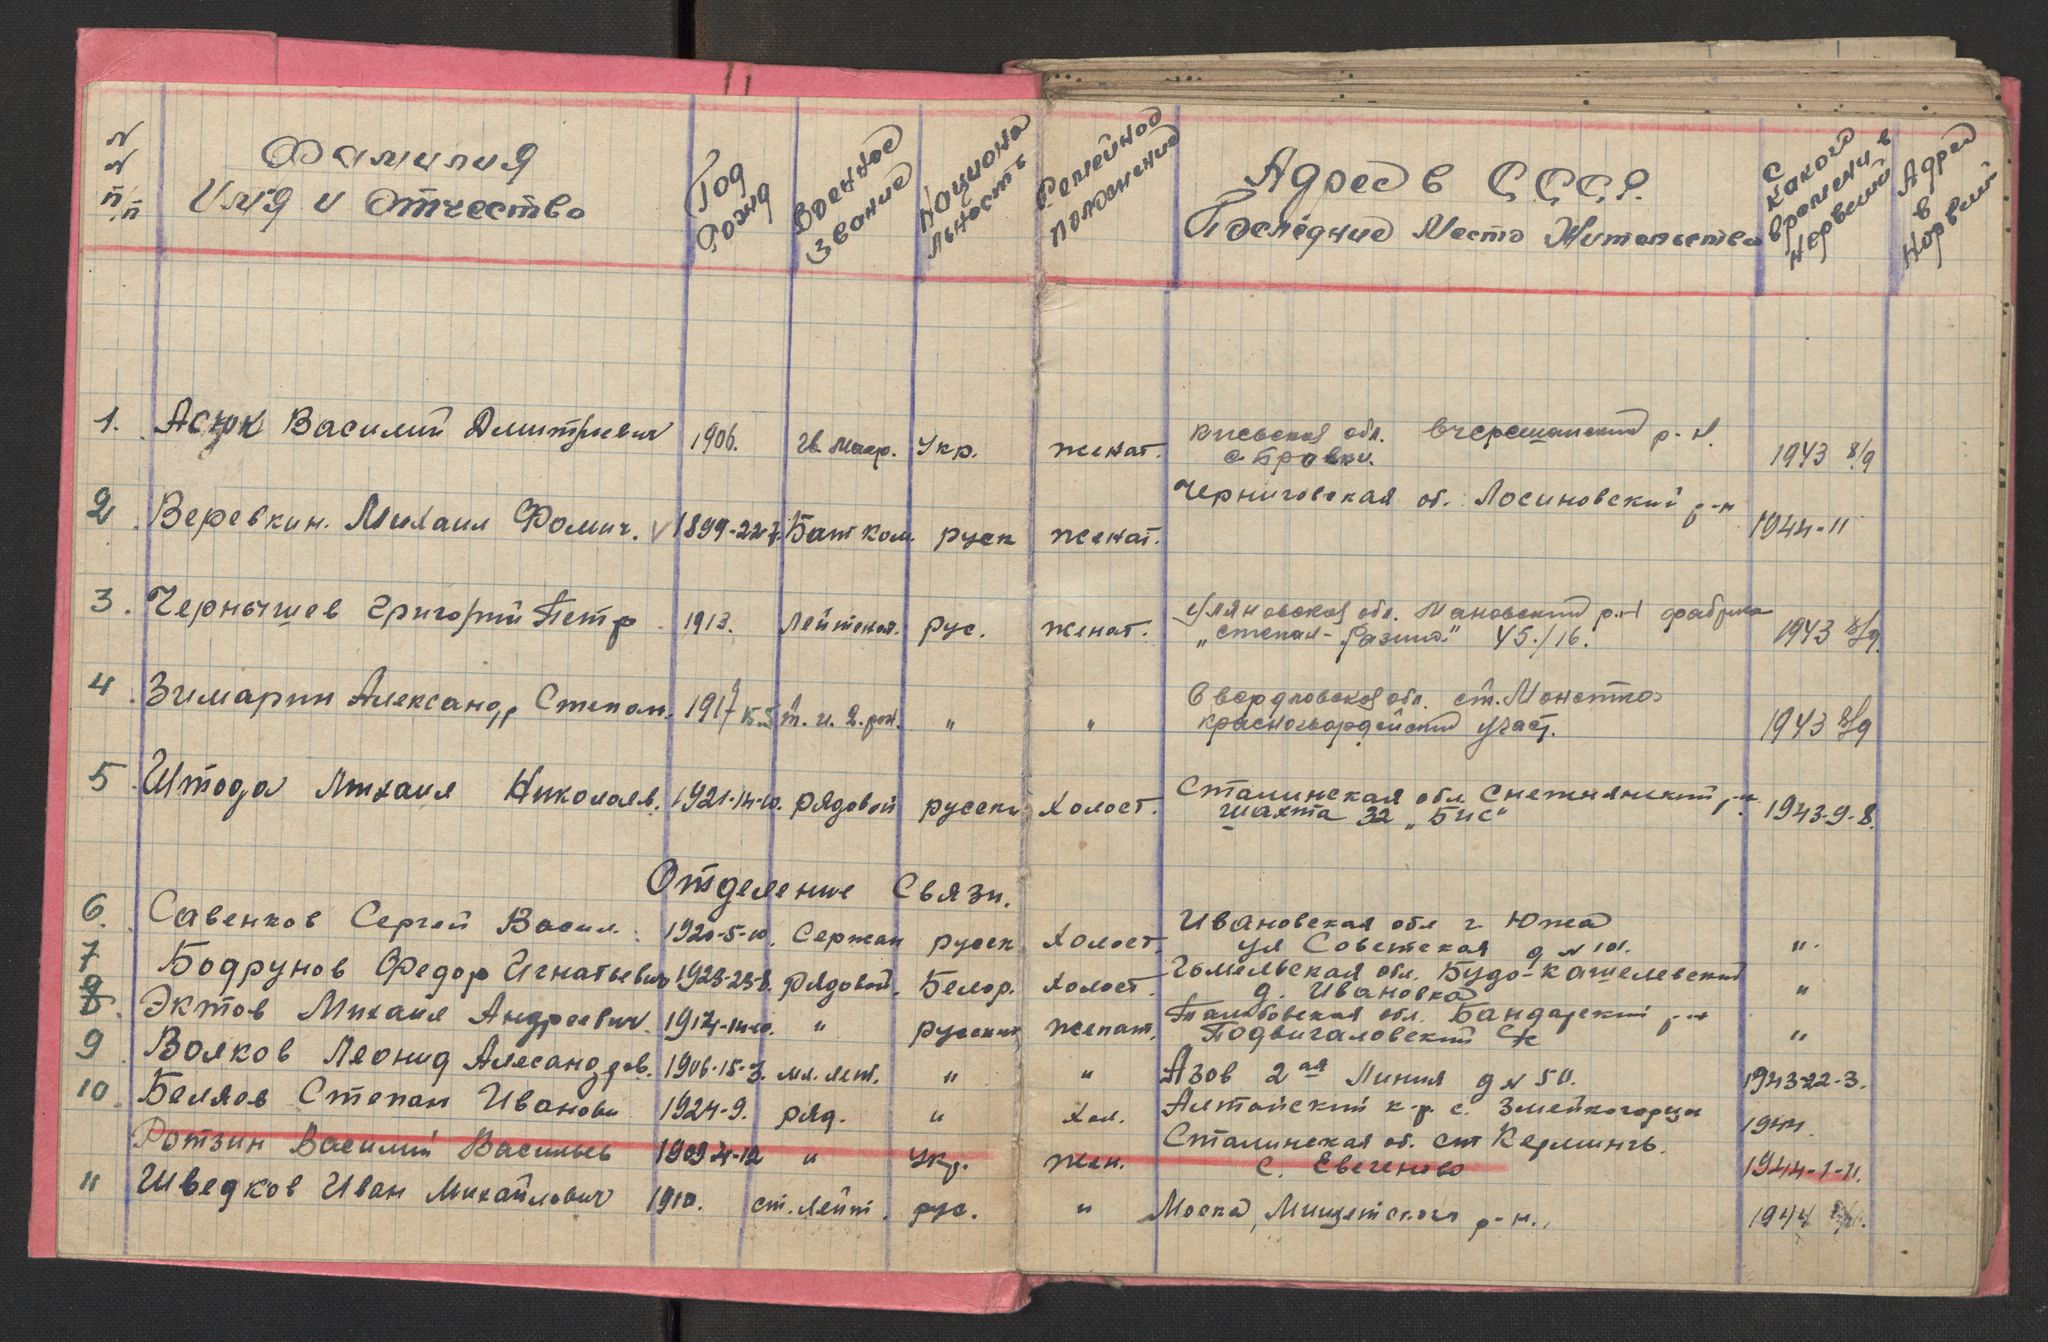 № № п/п
Фамилия
Имя и Отчество
Год рожд
Военное звание
Национа льность
Семейное положение
Адрес в С.С.С.Р.
Последнее Место Жительства
С какого времени в Норвегии
Адрес в Норвегии
1. Асюк Василий Дмитриевич 1906. Укр. женат. Киевская обл. Вчерашанский р-н. 1943 8/9
2. Веревкин. Михаил Фомич. V 1899-22-7. Бат ком. руск женат. Черниговская об. Лосиновский р-н 1944-11
3. Чернышев Григорий Петр 1913. Лейтенат. рус. женат. Ульяновская обл. р-н фабрика 1943 8/9.
"Степан-Разина" 45./16.
4. Зимарин Александр Степан. 1917 15.5 т. и. 2. ран. " " Свердловская обл. ст. Монетна 1943 8/9
красногвордейский участ.
5. Штода Михаил Николаев. 1921-14-10. рядовой русски Холост. Сталинская обл Снежнянский р-н 1943-9-8.
шахта 32 "Бис"
Отделение Связи.
6. Савенков Сергей Васил. 1920-5-10. Сержан русск Холост. Ивановская обл г. Южа "
ул Советская д № 101.
7 Бодрунов Федор Игнатьевич 1923-23-8. рядовой. Белор. Холост. Гомельская обл. Будо-кашелевский "
д. Ивановка
8 Эктов Михаил Андреевич. 1914-14-10. " русский женат. Тамбовская обл. Бандарский р-н "
Подвигаловский с/с
9 Волков Леонид Алесандров. 1906-15-3. мл. лет. " " Азов 2ая Линия д № 50. 1943-22-3.
10 Беляев Степан Иванови 1924-9. ряд. " хол. Алтайский к-р. с. Змейногорцк 1944.
Ротзин Василий Васильев 1909 4-12 " Укр. жен. Сталинская об. ст 1944-1-11.
с. Евгенево
11 Шведков Иван Михайлович 1910. ст. лейт. рус. " Москва, р-н., 1944